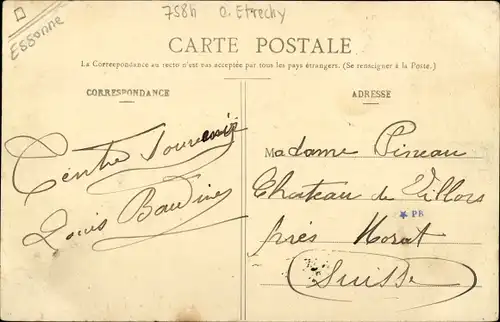 Essonne
758h O. Etrechy
CARTE POSTALE
La Correspondance au recto n'est pas acceptée par tous les pays étrangers. (Se renseigner à la Poste.)
CORRESPONDANCE
Tendre Souvenir
Louis
ADRESSE
Madame Pineau
Chateau de Villars
PB
près Morat
Suisse